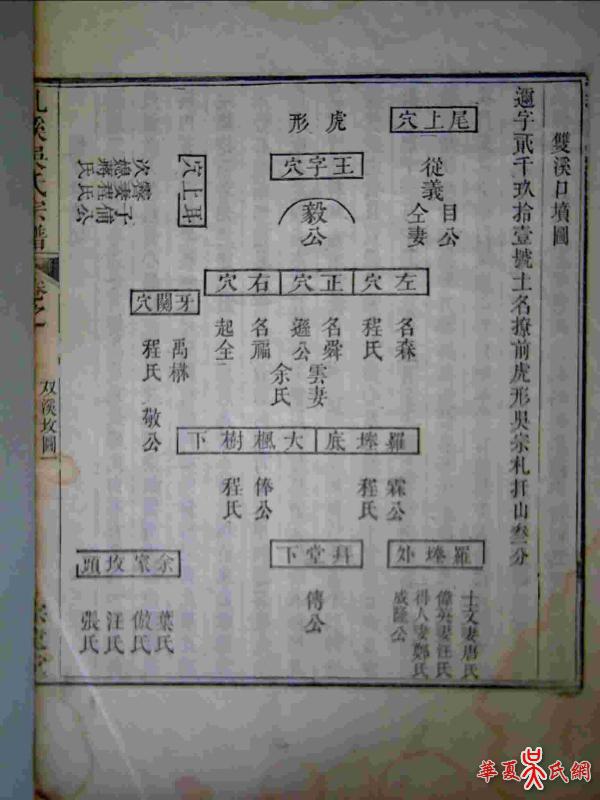 雙溪口墳圖
迩字貳千玖拾壹號土名撩前虎形吳宗札扦山叁分
尾上穴
從義目公
仝妻
虎形
王字穴
毅公
耳上穴
子俌公
霽妻程氏
次媳蔣氏
左穴
正穴
右穴
名森
程氏
名舜
遜公
雲妻
余氏
名福
起全
牙關穴
禹楙
程氏
敬公
羅塋底
大楓樹下
霖公
程氏
俸公
程氏
羅塋外
士文妻唐氏
偉英妻汪氏
得人妻鄭氏
咸隆公
拜堂下
傳公
余家坟頭
葉氏
俶氏
汪氏
張氏
溪吳氏宗譜
卷之
双溪坟圖
華夏吴氏網